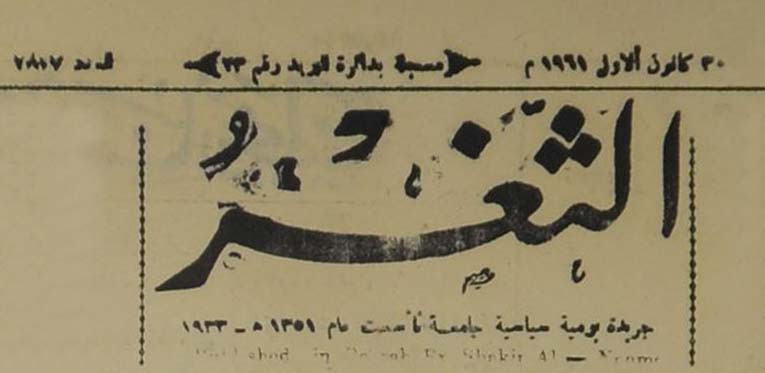 ٣٠ كانون الاول ١٩٦١ م (مسجلة بدائرة البريد رقم ٢٣) العدد ٧٨٠٧
الثَّغْرُ
جريدة يومية سياسية جامعة تأسست عام ١٣٥١ هـ - ١٩٣٣
Published in Basrah By Shakir Al - Neema